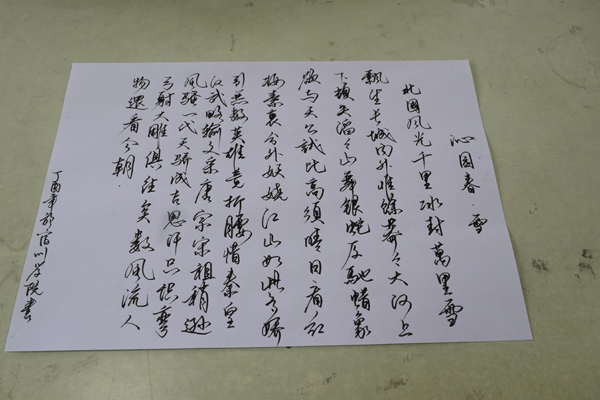 沁园春·雪
北国风光千里冰封萬里雪
飘望长城内外惟馀莽々大河上
下顿失滔々山舞银蛇原驰蜡象
欲与天公试比高须晴日看红
装素裹分外妖娆江山如此多娇
引无数英雄竞折腰惜秦皇
汉武略输文采唐宗宋祖稍逊
风骚一代天骄成吉思汗只识弯
弓射大雕俱往矣数风流人
物还看今朝.
丁酉年 宿州学院書